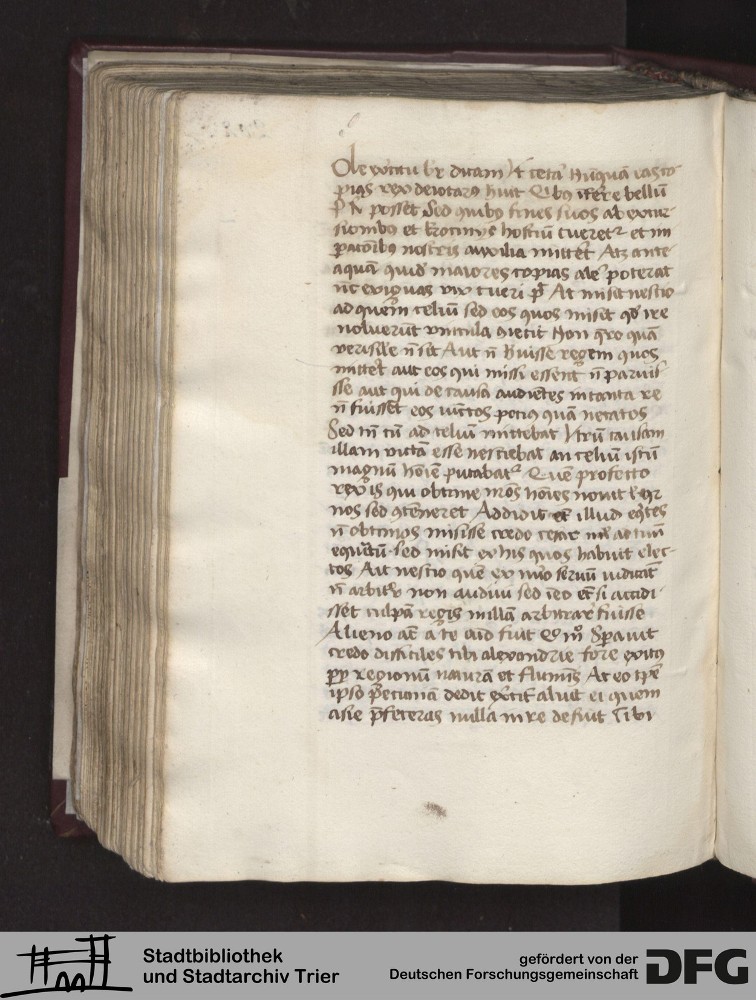 Ole exercitu br dicam Ut cetera Nunquā eas co
pias rex deiotarus huit Quibus inferre bellū
p R posset Sed quibus fines suos ab excur-
sionibus et latrociniis hostiū tueret et im
patoribus nostris auxilia mittet Atque ante
aquam quidē maiores copias ale poterat
nc exiguas vix tueri pt At misit nescio
ad quem celiū sed eos quos misit quod ire
noluerūt in vincula coniecit Non quero quā
verisile n sit Aut n huisse regem quos
mittet aut eos qui missi essent n paruis
sse aut qui de causa audientes in tanta re
n fuissēt eos vinctos pocius quā necatos
Sed tn cū ad celiū mittebat Utrū causam
illam victā esse nesciebat an celiū istū
magnū hoīem putabat Quē profecto
rex is qui obtime nros hoies novit
nos sed contēneret Addidit et illud eqtes
n obtimos misisse credo cesar nil ad tuū
equitatū sed misit ex his quos habuit elec-
tos Ait nescio quē ex nuo seruū iudicatū
n arbitror non audiui sed in eo etsi accidi
sset culpā regis nullā arbitrarer fuisse
Alieno aut a te aio fuit Quo mo Sperauit
credo difficiles tibi alexandrie fore exitus
pp regionū naturā et fluminis At eo tpe
ipso pecuniam dedit exercit aluit ei quem
asie pfeceras nulla in re defuit Tibi
Stadtbibliothek
und Stadtarchiv Trier
gefördert von der
Deutschen Forschungsgemeinschaft
DFG